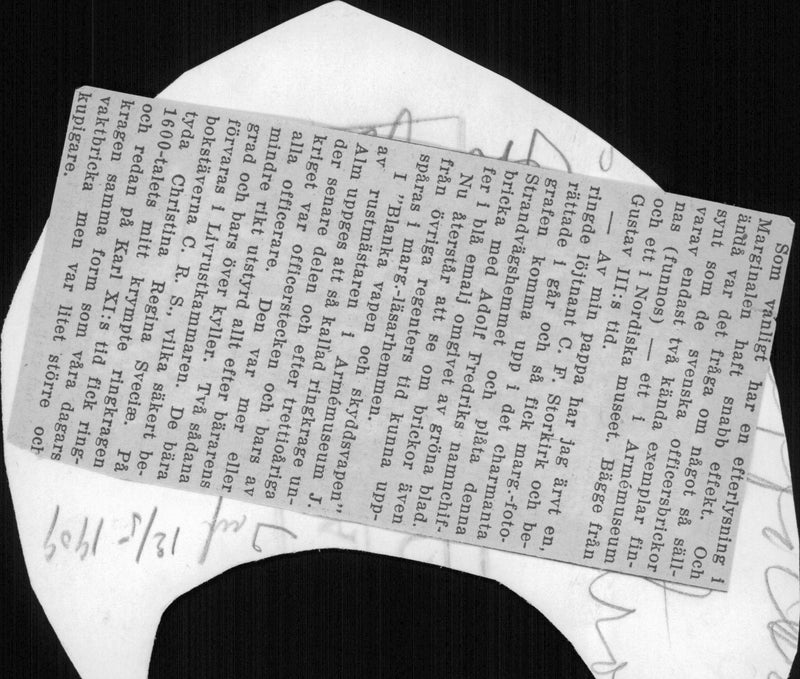 Som vanligt har en efterlysning i
Marginalen haft snabb effekt. Och
ändå var det fråga om något så säll-
synt som de svenska officersbrickor
varav endast två kända exemplar fin-
nas (funnos) — ett i Armémuseum
och ett i Nordiska museet. Bägge från
Gustav III:s tid.
— Av min pappa har jag ärvt en,
ringde löjtnant C. F. Storkirk och be-
rättade i går och så fick marg.-foto-
grafen komma upp i det charmanta
Strandvägshemmet och plåta denna
bricka med Adolf Fredriks namnchif-
fer i blå emalj omgivet av gröna blad.
Nu återstår att se om brickor även
från övriga regenters tid kunna upp-
spåras i marg.-läsarhemmen.
I "Blanka vapen och skyddsvapen"
av rustmästaren i Armémuseum J.
Alm uppges att så kallad ringkrage un-
der senare delen och efter trettioåriga
kriget var officerstecken och bars av
alla officerare. Den var mer eller
mindre rikt utstyrd allt efter bärarens
grad och bars över kyller. Två sådana
förvaras i Livrustkammaren. De bära
bokstäverna C. R. S., vilka säkert be-
tyda Christina Regina Sveciæ. På
1600-talets mitt krympte ringkragen
och redan på Karl XI:s tid fick ring-
kragen samma form som våra dagars
vaktbricka men var litet större och
kupigare.
12/5 1959